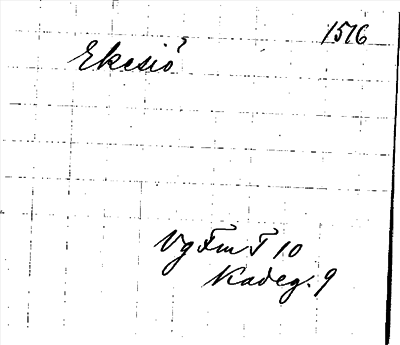 1516
Ekesiö
Vg Fm T 10
Kadeg. 9